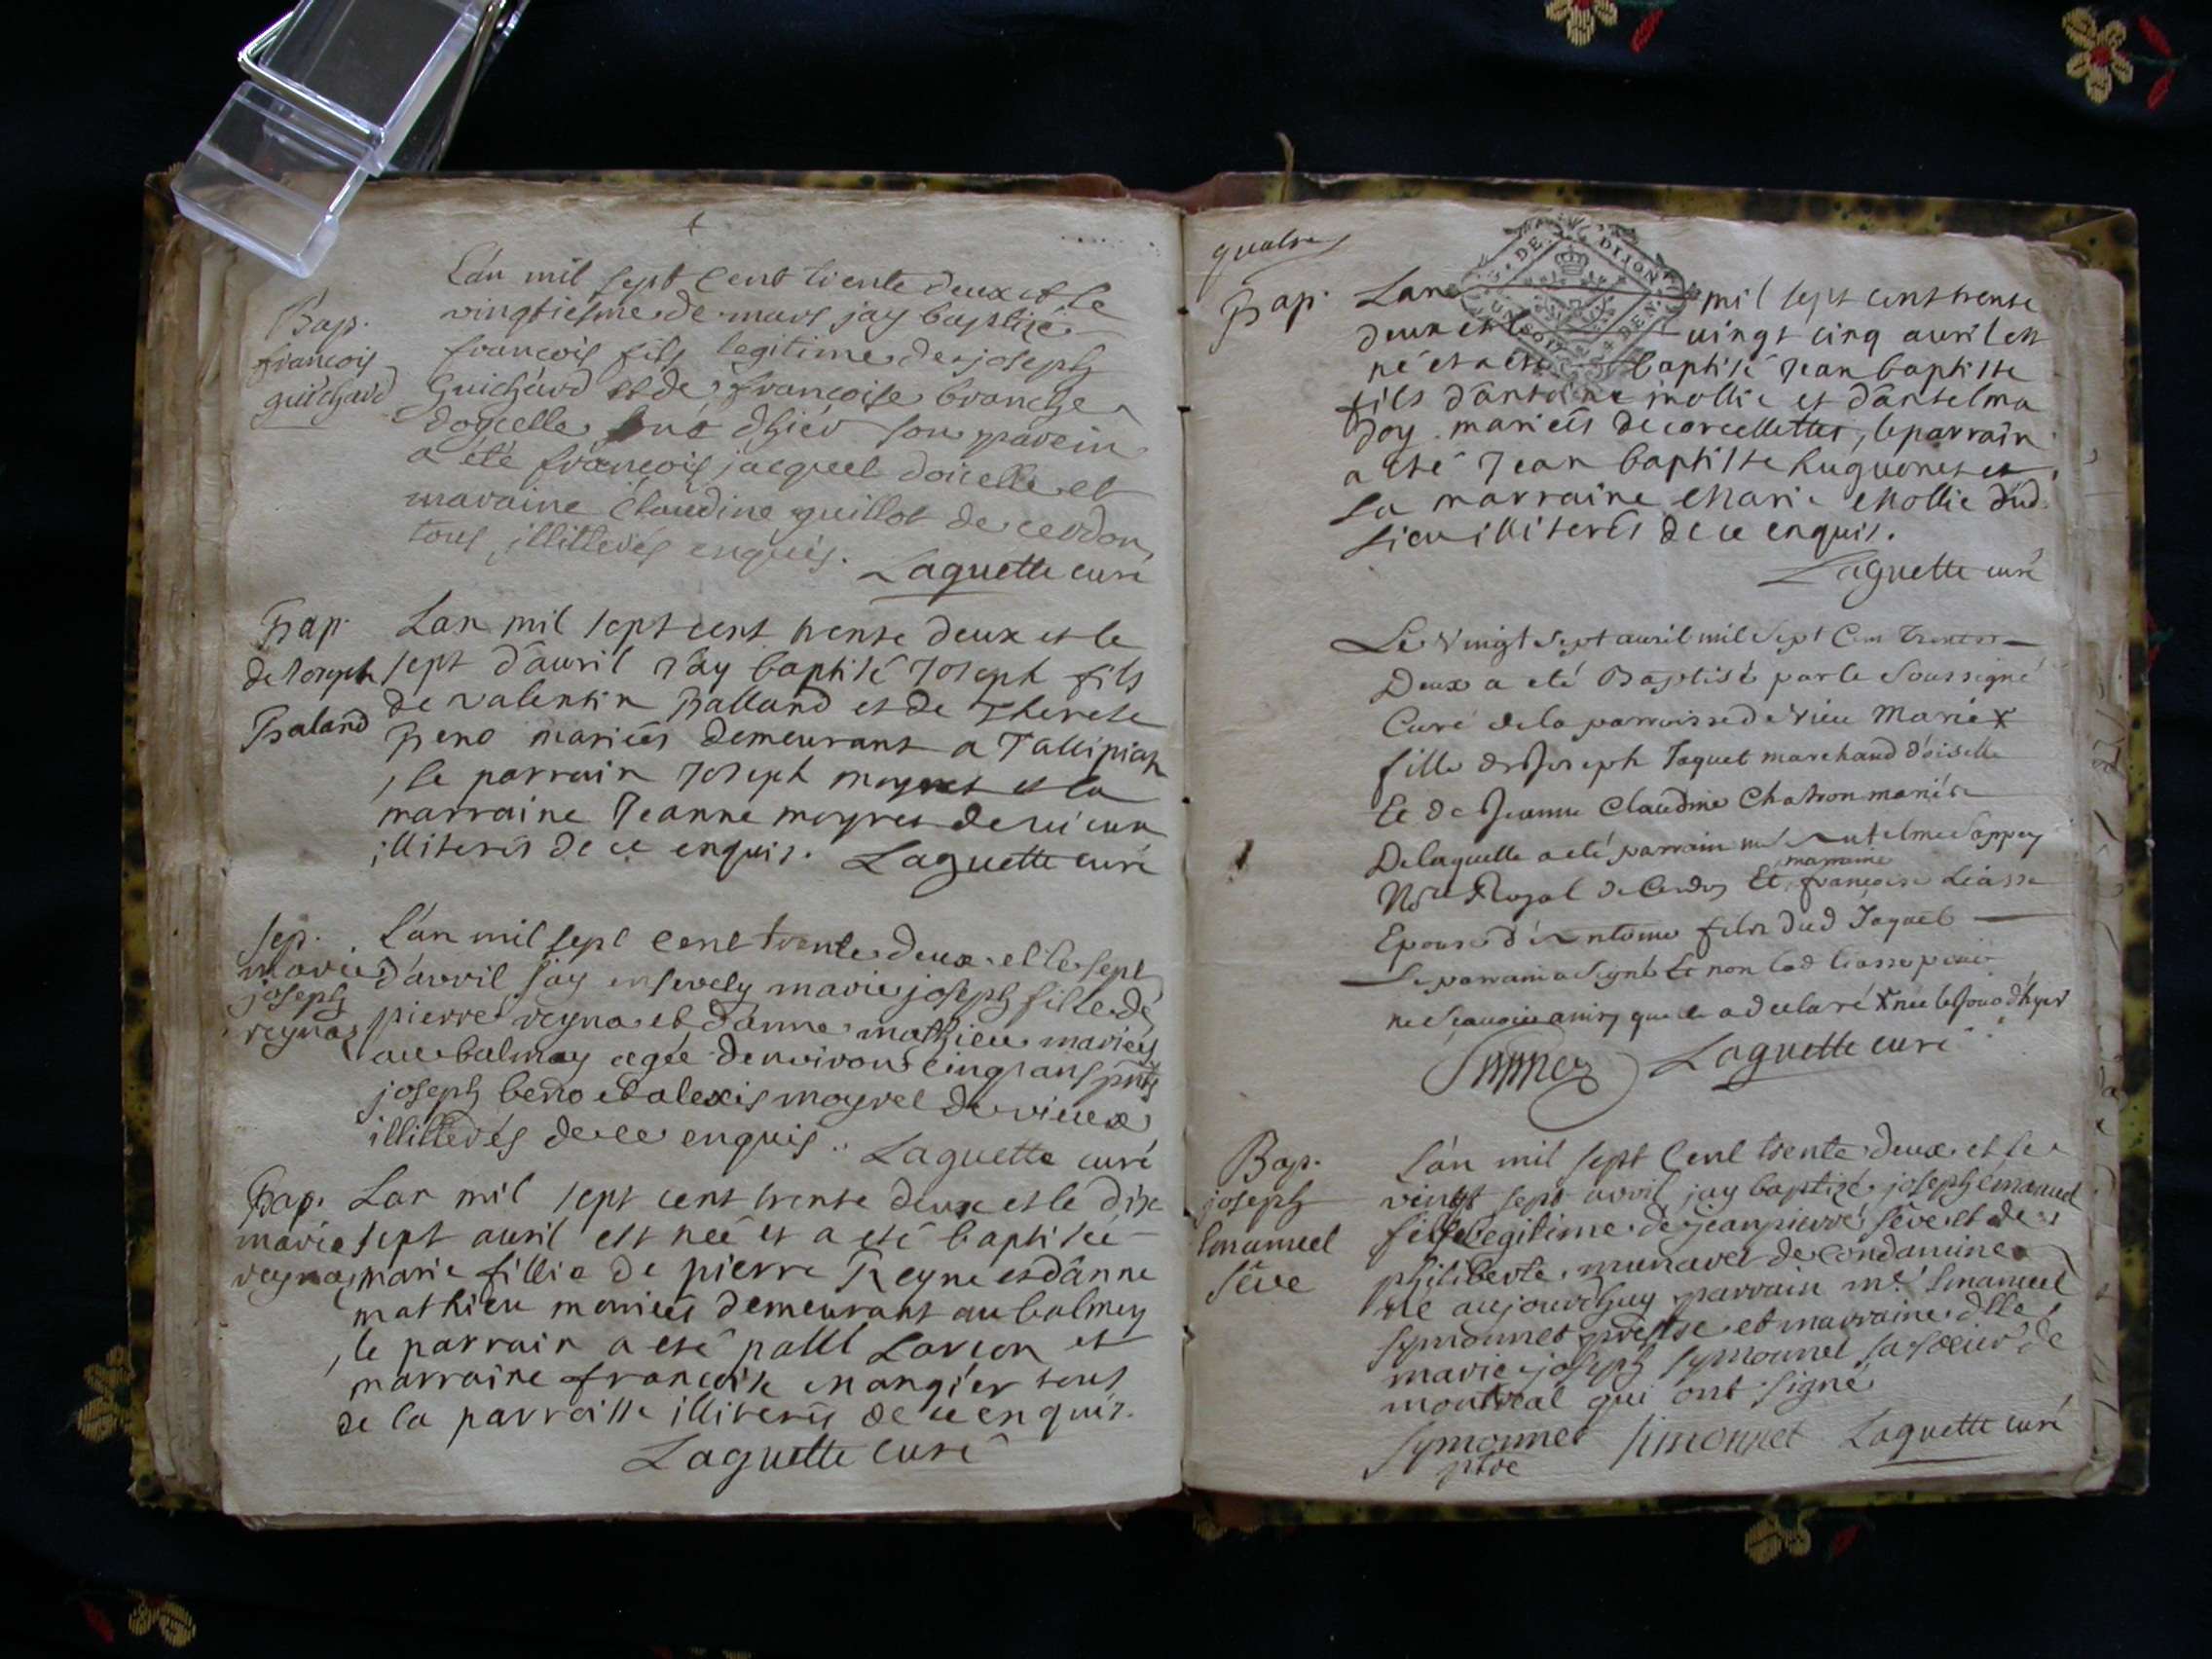 Bap.
francois
guichard
L'an mil sept cent trente deux et le
vingtiesme de mars jay baptizé
francois fils legitime de joseph
Guichard et de francoise branche
doycelle né d'hier son parein
a été francois jacquet doicelle et
maraine Claudine guillot de cerdon
tous illitterés enquis. Laguette curé
Bap.
de Joseph
Baland
Lan mil sept cent trente deux et le
sept d'auril J'ay baptisé Joseph fils
de valentin Balland et de Therese
Beno mariés demeurant a Tallipiat
, le parrain Joseph moyret et la
marraine Jeanne moyret de
illiterés de ce enquis. Laguette curé
sep.
marie
joseph
reyna
L'an mil sept cent trente deux et le sept
d'avril jay ensevely marie joseph fille de
pierre reyna et d'anne mathieu mariés
au balmay agée denviron cinq ans pnts
joseph beno et alexis moyret de vieux
illitterés de ce enquis. Laguette curé
Bap.
marie
reyna
Lan mil sept cent trente deux et le dix
sept auril est neé et a eté baptiseé
marie fillie de pierre Reyne et d'anne
mathieu mariés demeurant au balmey
, le parrain a eté Larcon et
marraine francoise mangier tous
de la parroisse illiterés de ce enquis.
Laguette Curé
quatre
DE DIJON
Bap.
Lan mil sept cent trente
deux et le uingt cinq auril est
né et a eté baptisé Jean baptiste
fils d'antoine mollie et d'antelma
Joy mariés de corcellettes, le parrain
a eté Jean baptiste huguonet et
la marraine Marie Mollie dud
lieu illiterés de ce enquis.
Laguette curé
Le vingt sept auril mil sept Cent Trente
Deux a eté Baptisé par le soussigné
Curé de la parroisse de vieu Marie X
fille de Joseph Jaquet marchand d'oiselle
Et de Jeanne Claudine Chatron mariés
De laquelle a eté parrain Me Antelme Sappey
Nore Royal de Cerdon Et françoise Liasse
marraine
Epouse d'Antoine fils dud Jaquet
Le parrain a signé Et non lad liasse pour
ne scauoir ainsy quelle a declaré X neé le jour d'hyer
Laguette curé
Bap.
joseph
Emanuel
Séve
L'an mil sept cent trente deux et le
vingt sept avril jay baptizé joseph émanuel
fils legitime de jean pierre séve et de
philiberte munaret de condamine
né aujourdhuy parrain mr. Emanuel
symonnet prestre et marraine dlle
marie joseph symonnet sa soeur de
montréal qui ont signé
Symonnet Simonnet Laguette curé
ptre